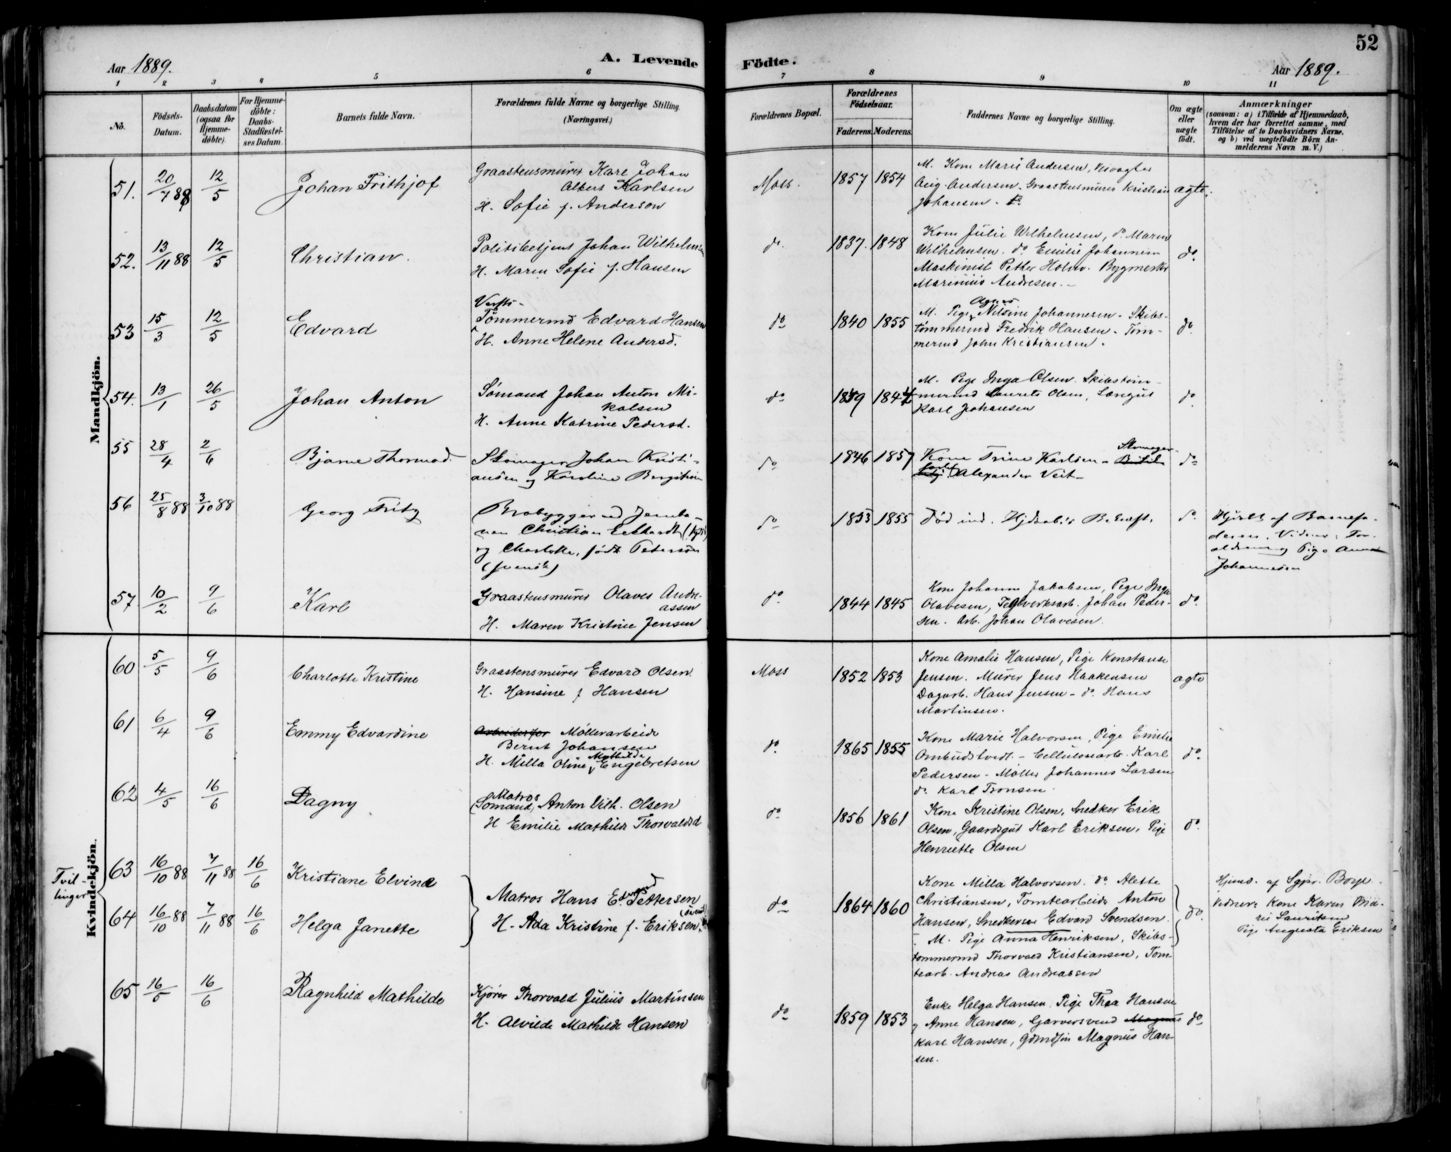 Aar 1889.
A. Levende Födte.
Aar 1889.
52
1 2 3 4 5 6 7 8 9 10 11
No.
Födsels-Datum.
Daabsdatum (ogsaa for Hjemme-döbte).
For Hjemme-döbte: Daabs-Stadfæstelses Datum.
Barnets fulde Navn.
Forældrenes fulde Navne og borgerlige Stilling. (Næringsvei.)
Forældrenes Bopæl.
Forældrenes Födselsaar.
Faderens. Moderens.
Faddernes Navne og borgerlige Stilling.
Om ægte eller uægte födt.
Anmærkninger
(saasom: a) i Tilfælde af Hjemmedaab, hvem der har forrettet samme, med Tilföielse af to Daabsvidners Navne, og b) ved uægtefödte Börn Anmelderens Navn m. V.)
Mandkjön.
51. 20/7 88 12/5 Johan Frithjof
Graastensmurer Karl Johan
Albers Karlsen
H. Sofie f. Anderson
Moss. 1857 1854
M. Kone Marie Andersen,
Aug. Andersen. Graastensmurer Kristian
Johansen.
ægte.
52. 13/11 88 12/5 Christian.
Politibetjent Johan Wilhelmsen
H. Maren Sofie f. Hansen
do. 1837. 1848
Kone Julie Wilhelmsen, do Maren
Wilhelmsen. do Emilie Johannesen
Maskinist Petter Holm. Bygmester
Marinius Andresen.
do.
53 15/3 12/5 Edvard
Verfts-
Tømmermd Edvard Hansen
H. Anne Helene Andersd.
do 1840 1855
M. Pige Nilsine Johannesen. Skibs-
tømmermd Fredrik Hansen. Tøm-
mermd John Kristiansen.
do.
54. 13/1 26/5 Johan Anton
Sømand Johan Anton Mi-
kalsen
H. Anne Katrine Pedersd.
do 1839 1844
M. Pige Inga Olsen. Skibstøm-
mermd Laurits Olsen,
Karl Johansen
do.
55 28/4 2/6 Bjarne Thormod.
Johan Kristi-
ansen og Karoline
do 1846 1857
Kone Trine Karlsen
Alexander Veit
do
56 25/8 88 3/10 88 Georg Fritz
Brobygger ved Jernba-
nen Christian
og Charlotte, født Peterson
(svensk)
do 1853 1855
Død ind.
do.
Hjdbt. af Barnefa-
deren. Vidner: For-
ældrene og Pige Anna
Johannesen
57 10/2 9/6 Karl
Graastensmurer Olaves Andre-
assen
H. Maren Kristine Jensen
do. 1844 1845
Kone Johanne Jakobsen, Pige Inga
Olavesen, Teglverksarb. Johan Peder-
sen. Arb. Johan Olavesen.
do.
Kvindekjön.
60 5/5 9/6 Charlotte Kristine
Graastensmurer Edvard Olsen
H. Hansine f Hansen
Moss 1852 1853
Kone Amalie Hansen, Pige Konstanse
Jensen. Murer Jens Haakensen
Dagarb. Hans Jensen - do Hans
Martinsen.
ægte
61 6/4 9/6 Emmy Edvardine
Møllerarbeide
Bernt Johansen
H. Milla Oline Mathilde Engebretsen
do. 1865 1855
Kone Marie Halvorsen, Pige Emilie
Ombudstvedt. - Cellulosearb. Karl
Pedersen - Møller Johannes Larsen
do Karl Tronsen.
do.
62 4/5 16/6 Dagny
Matros
Sømand, Anton Vilh. Olsen
H Emilie Mathilde Thorvaldsd
do. 1856 1861
Kone Kristine Olsen, Snedker Erik
Olsen, Gaardsgut Karl Eriksen, Pige
Henriette Olsen
do.
Tvil-
linger
63 16/10 88 7/11 88 16/6 Kristiane Elvine
64 16/10 88 7/11 88 16/6 Helga Janette
Matros Hans Edvard Pettersen
H. Ada Kristine f. Eriksen
do 1864 1860
Kone Milla Halvorsen. do Alette
Christiansen, Tomtearbeide Anton
Hansen, Snedkersv. Edvard Svendsen.
- M. Pige Anna Henriksen, Skibs-
tømmermd Thorvald Kristiansen, Tom-
tearb. Andreas Andreassen
do.
Hjdøbt. af Borge.
Vidner: Kone Karen Ma-
rie Lauritzen
Pige Augusta Eriksen
65 16/5 16/6 Ragnhild Mathilde
Kjører Thorvald Julius Martinsen
H. Alvilde Mathilde Hansen
do 1859 1853
Enke Helga Hansen. Pige Thea Hansen
og Anne Hansen, Garversvend Magnus
Karl Hansen, Magnus Han-
sen.
do